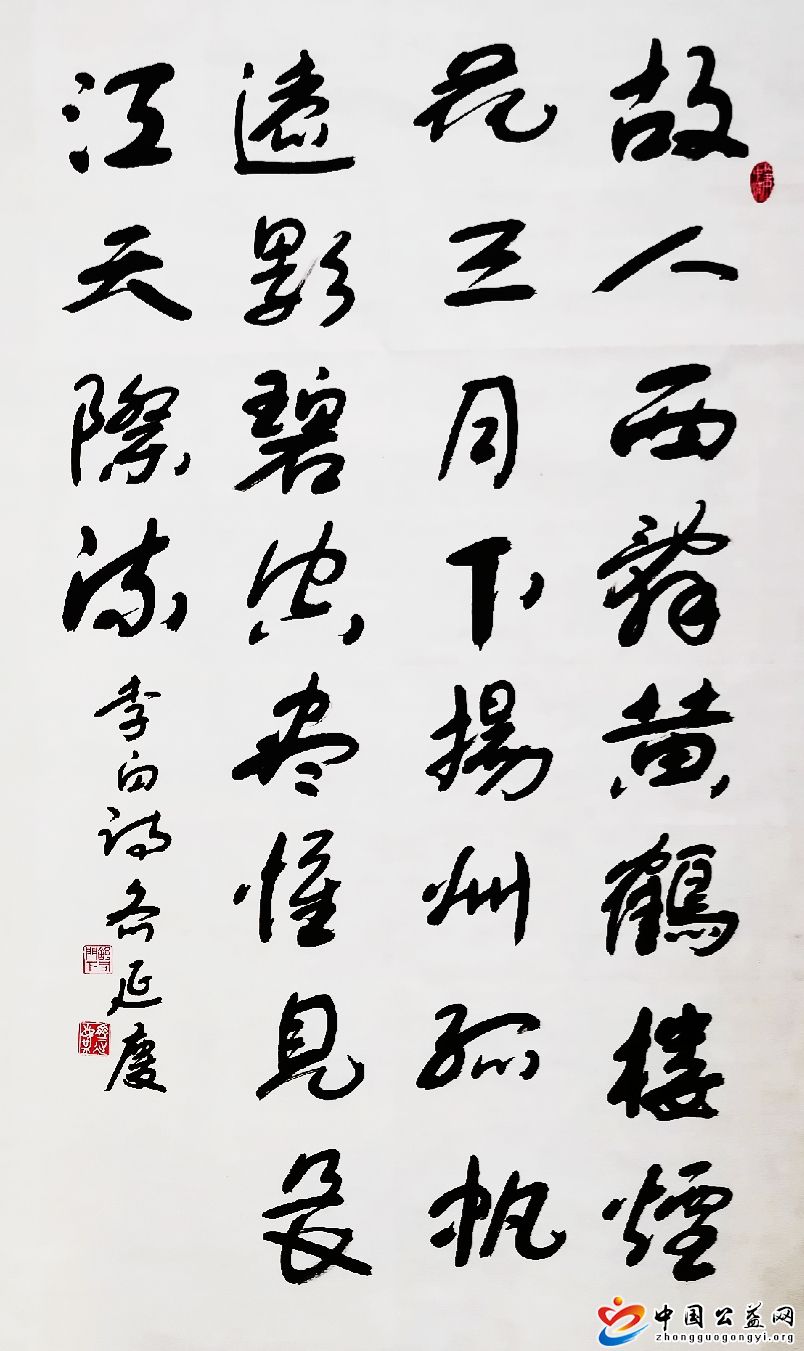 故人西辭黄鶴樓煙
花三月下揚州孤帆
遠影碧空尽惟見長
江天際流
李白詩 延慶
中国公益网
zhongguogongyi.org